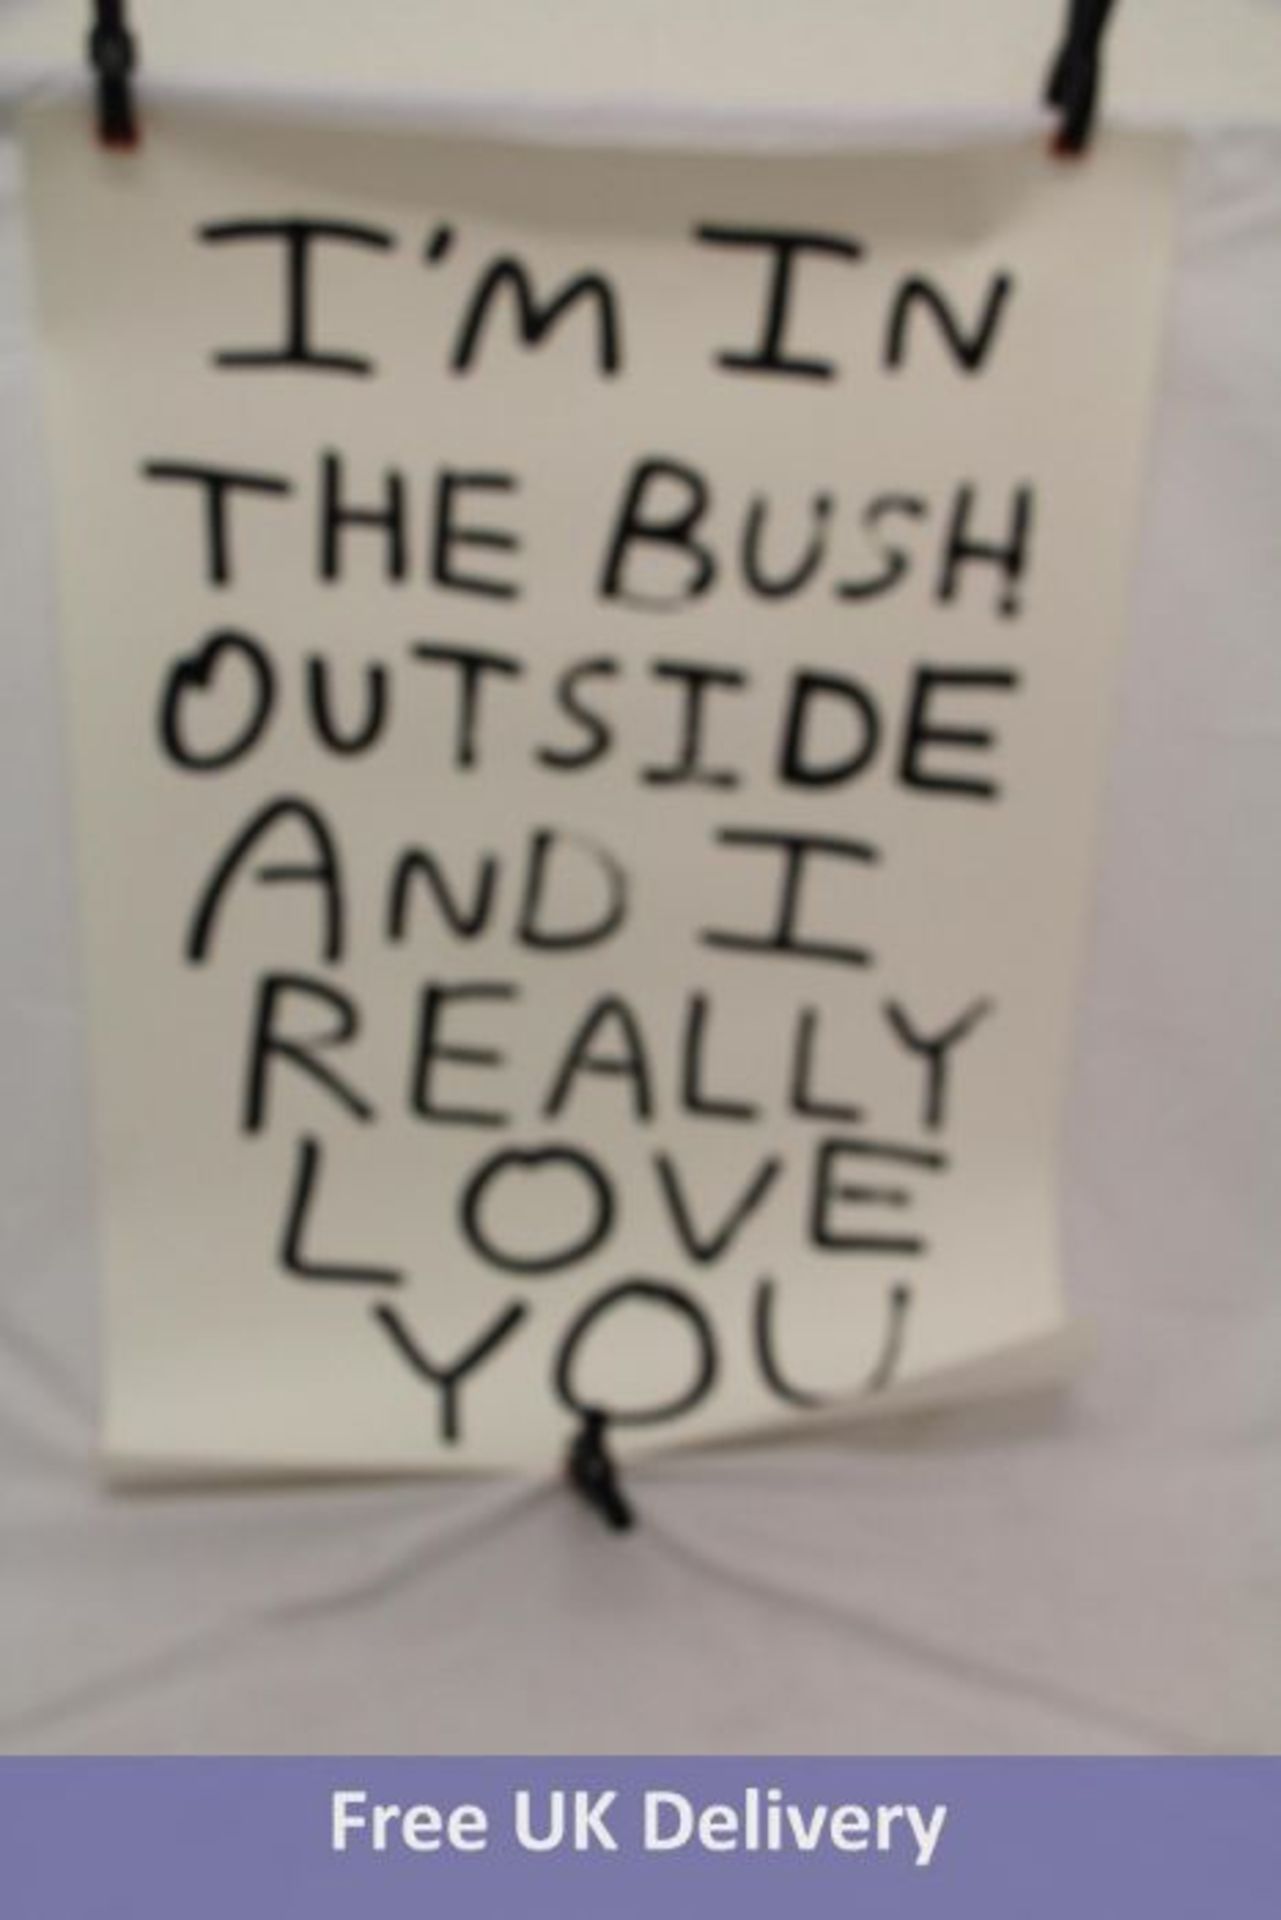 I'M IN
THE BUSH
OUTSIDE
AND I
REALLY
LOVE
YOU
Free UK Delivery